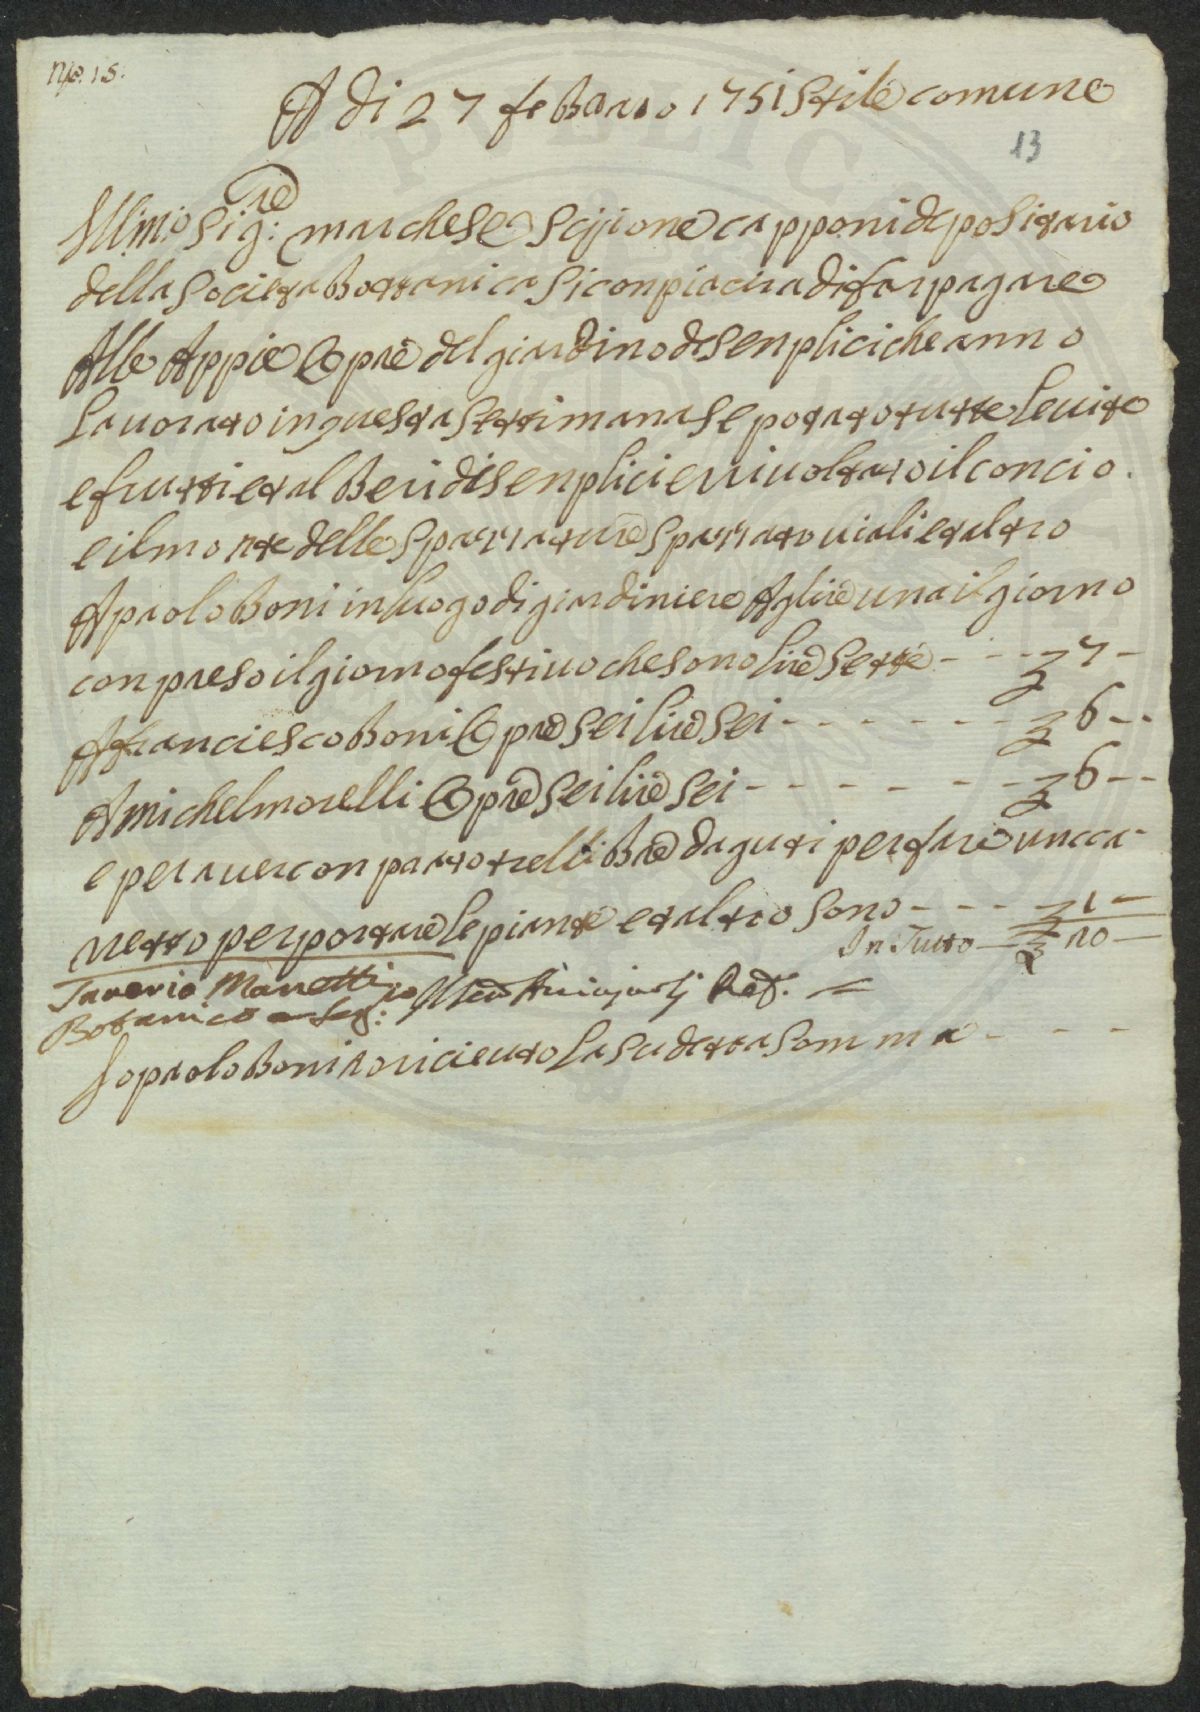 No. 15.
A di 27 febbraio 1751 stile comune
13
Illmo Sigre: marchese Scipione capponi depositario
della Società Bottanica si conpiacera di far pagare
Alle Appie Opre del giardino de Senplici che anno
lavorato in questa settimana se potato tutte le vite
e frutti et alberi di senplici e rivoltato il concio.
e il monte delle spazzature spazzato viali et altro
A paolo Boni in luogo di giardiniere A lire una il giorno
conpreso il giorno festivo che sono lire sette - - - 7 -
A franciesco Boni Opre sei lire sei - - - - - - 6 - -
A michel morelli Opre sei lire sei - - - - - - 6 - -
e per aver conpatto tre libre d aguti per fare un cca-
netto per portare le piante et altro sono - - - - 1 -
In Tutto - 20 -
Saverio Manetti
Botanico e Seg:rio
Io paolo Boni o riceuto la sudetta somma - - - -